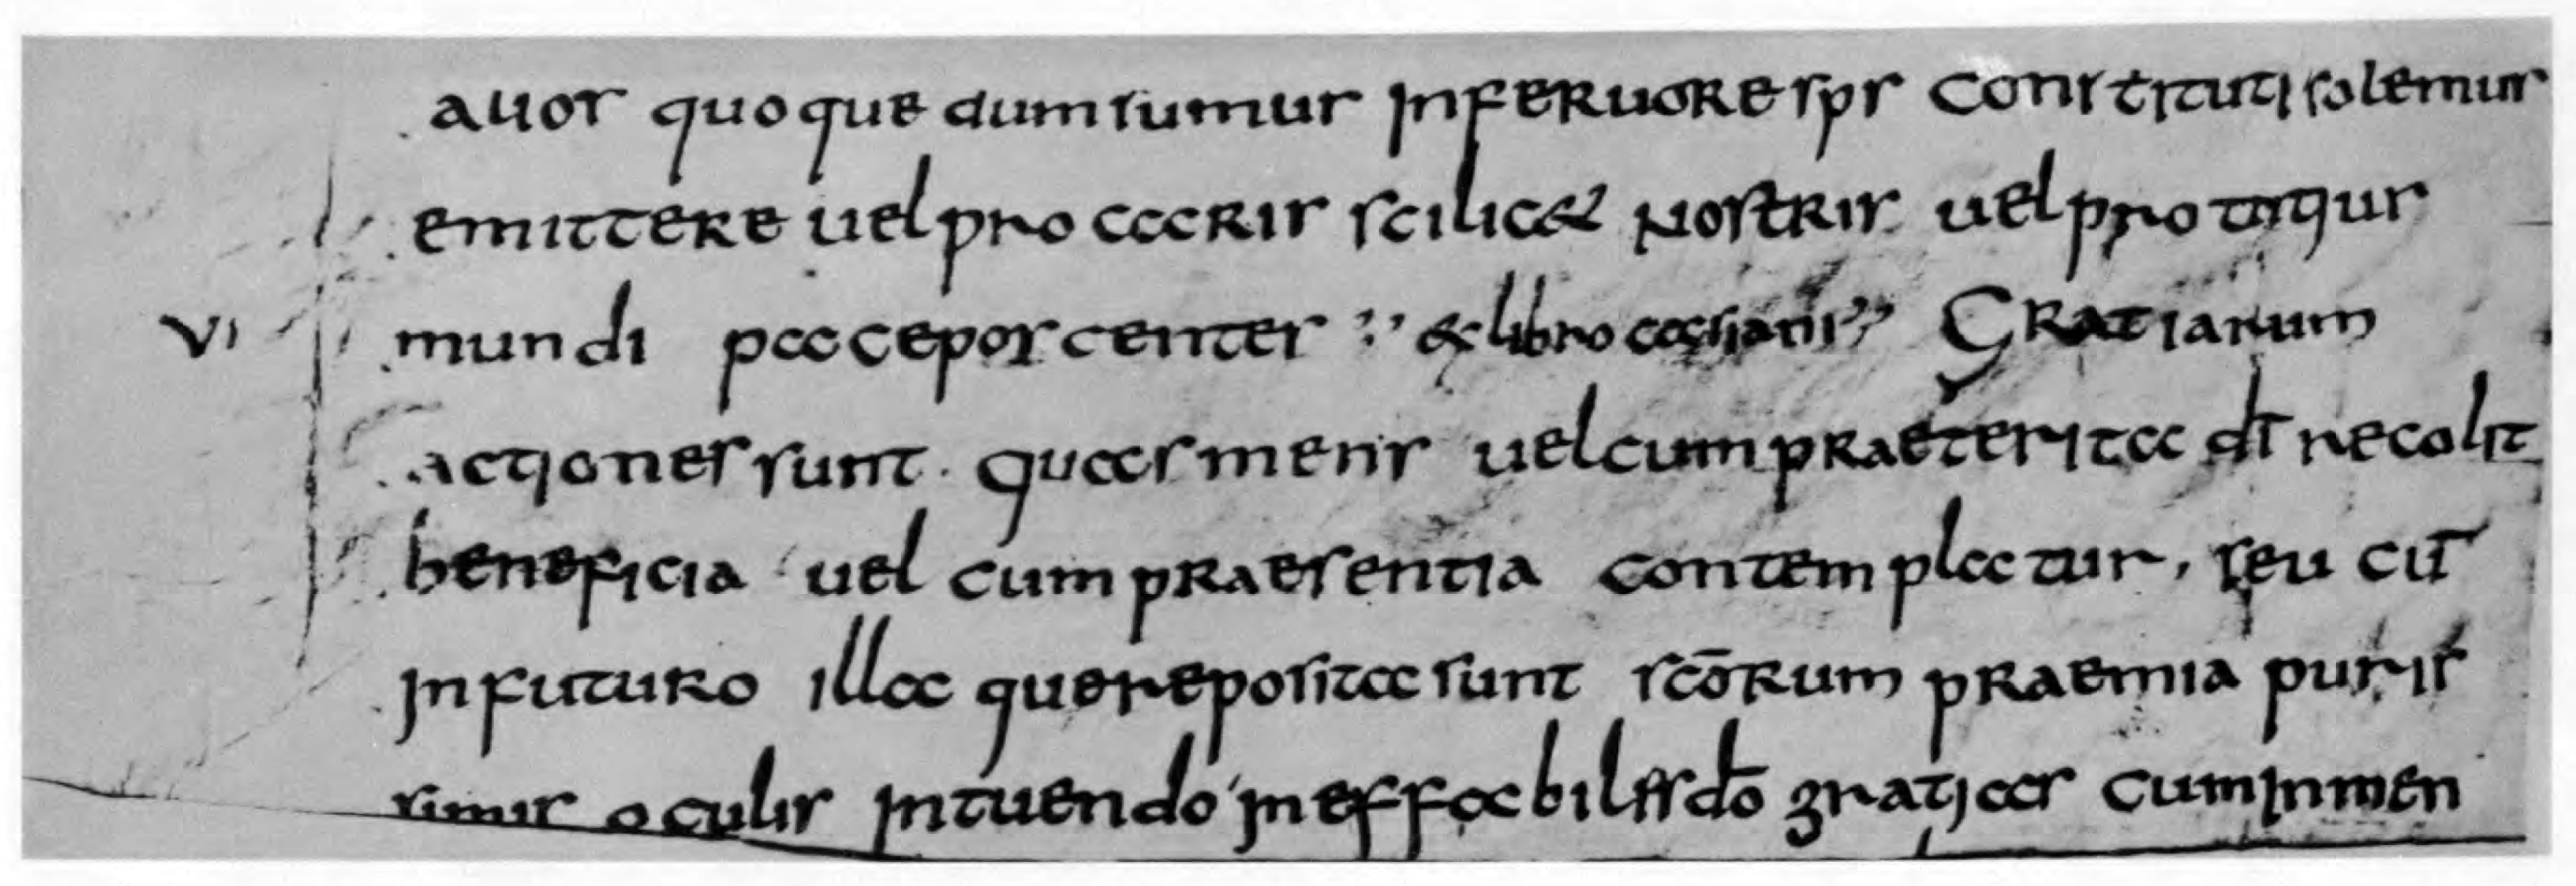 alios quoque dum sumus in feruore sps constituti solemus
emittere uel pro caris scilicet nostris uel pro totius
mundi pace poscentes :, ex libro cassiani ,, Gratiarum
VI
actiones sunt · quas mens uel cum praeterita di recolit
beneficia uel cum praesentia contemplatur, seu cū
in futuro illa que reposita sunt scōrum praemia puris
simis oculis intuendo ineffabiles dō gratias cum inmen